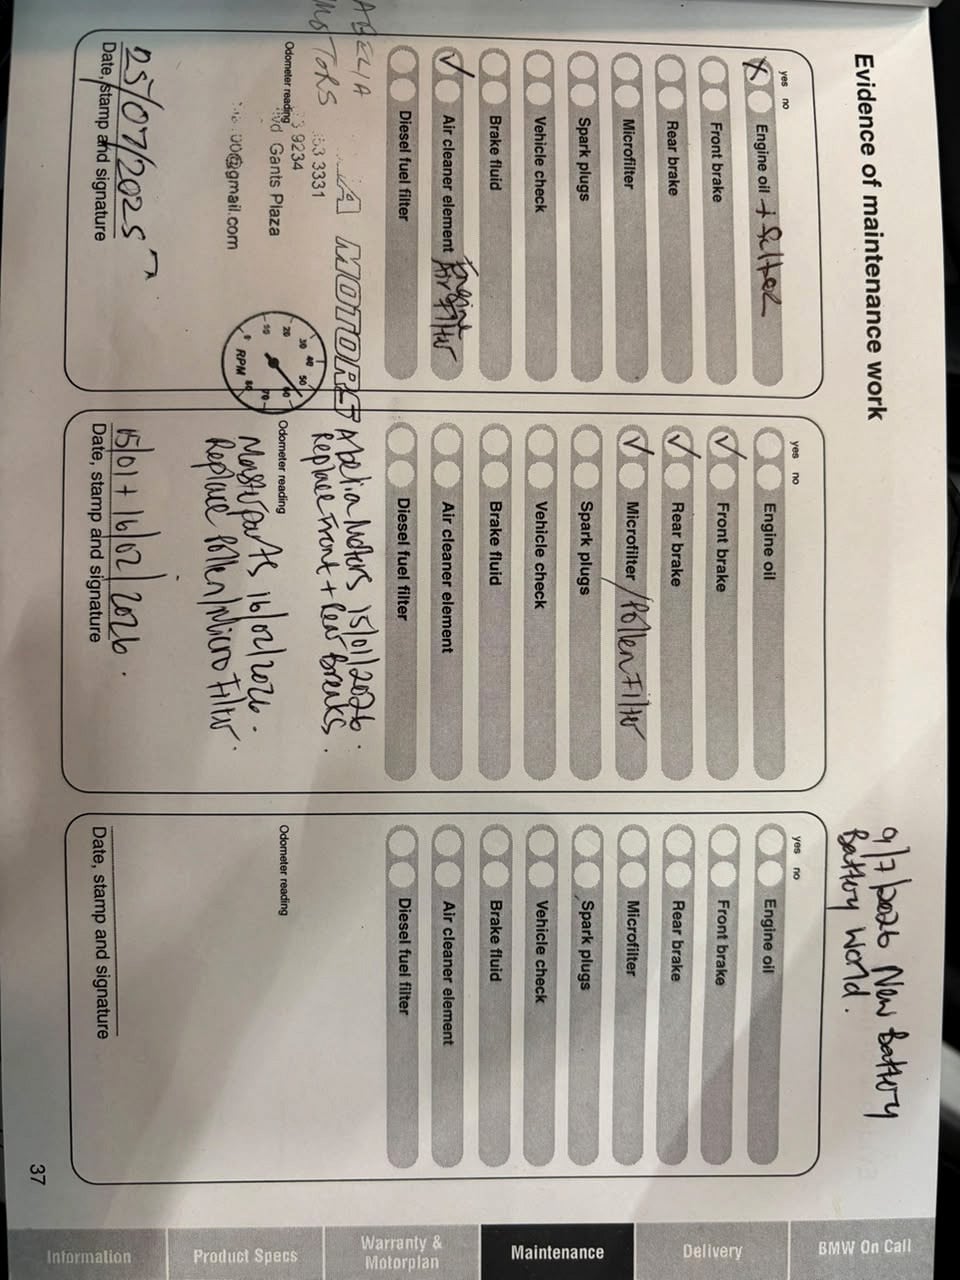 Evidence of maintenance work
9/7/2026 New Battery
Battery World.
yes no
Engine oil + filter
Front brake
Rear brake
Microfilter
Spark plugs
Vehicle check
Brake fluid
Air cleaner element Engine Air Filter
Diesel fuel filter
ABELIA
MOTORS
MOTORS
53 3331
9234
Odometer reading
Gants Plaza
00@gmail.com
10 20 30 40 50 60 70 80
RPM
25/07/2025
Date, stamp and signature
yes no
Engine oil
Front brake
Rear brake
Microfilter / Pollen Filter
Spark plugs
Vehicle check
Brake fluid
Air cleaner element
Diesel fuel filter
Abelia Motors 15/01/2026.
Replace Front + Rear Breaks.
Odometer reading
Masterparts 16/02/2026.
Replace Pollen/Micro Filter.
15/01 + 16/02/2026.
Date, stamp and signature
yes no
Engine oil
Front brake
Rear brake
Microfilter
Spark plugs
Vehicle check
Brake fluid
Air cleaner element
Diesel fuel filter
Odometer reading
Date, stamp and signature
37
BMW On Call
Delivery
Maintenance
Warranty &
Motorplan
Product Specs
Information